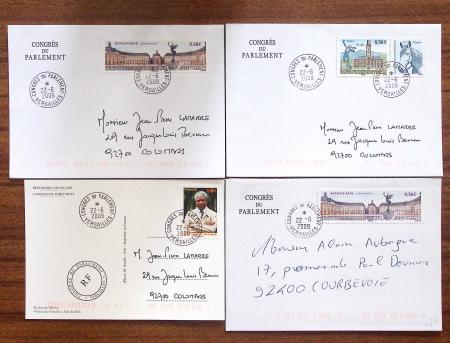 CONGRÈS
DU
PARLEMENT
0,56€
CONGRÈS DU PARLEMENT
22-6
2009
VERSAILLES
Monsieur Jean-Pierre LAMARRE
29 rue Jacques Louis Bernier
92700 COLOMBES
CONGRÈS
DU
PARLEMENT
0,56€
CONGRÈS DU PARLEMENT
22-6
2009
VERSAILLES
Monsieur Jean-Pierre LAMARRE
29 rue Jacques Louis Bernier
92700 COLOMBES
RÉPUBLIQUE FRANÇAISE
CONGRÈS DU PARLEMENT
CONGRÈS DU PARLEMENT
22-6
2009
VERSAILLES
RF
M. Jean-Pierre LAMARRE
29 rue Jacques Louis Bernier
92700 COLOMBES
CONGRÈS
DU
PARLEMENT
BORDEAUX
0,56€
CONGRÈS DU PARLEMENT
22-6
2009
VERSAILLES
Monsieur Alain
17, promenade Paul
92400 COURBEVOIE